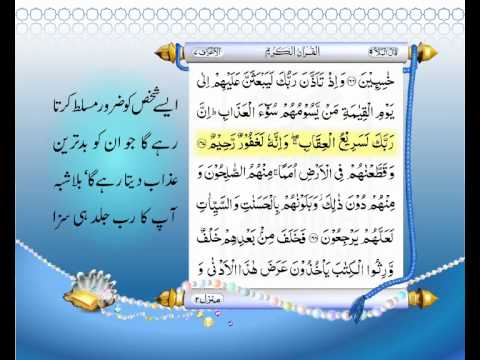 قال الملا ۹
القرآن الكريم
الاعراف ۷
خٰسِـِٕيْنَ ﴿۱۶۶﴾ وَ اِذْ تَاَذَّنَ رَبُّكَ لَيَبْعَثَنَّ عَلَيْهِمْ اِلٰى
يَوْمِ الْقِيٰمَةِ مَنْ يَّسُوْمُهُمْ سُوْٓءَ الْعَذَابِ ؕ اِنَّ
رَبَّكَ لَسَرِيْعُ الْعِقَابِ ۖۚ وَ اِنَّهٗ لَغَفُوْرٌ رَّحِيْمٌ ﴿۱۶۷﴾
وَ قَطَّعْنٰهُمْ فِى الْاَرْضِ اُمَمًا ۚ مِنْهُمُ الصّٰلِحُوْنَ وَ
مِنْهُمْ دُوْنَ ذٰلِكَ ۫ وَ بَلَوْنٰهُمْ بِالْحَسَنٰتِ وَ السَّيِّاٰتِ
لَعَلَّهُمْ يَرْجِعُوْنَ ﴿۱۶۸﴾ فَخَلَفَ مِنْۢ بَعْدِهِمْ خَلْفٌ
وَّرِثُوا الْكِتٰبَ يَاْخُذُوْنَ عَرَضَ هٰذَا الْاَدْنٰى وَ
منزل ۲
ایسے شخص کو ضرور مسلط کرتا
رہے گا جو ان کو بدترین
عذاب دیتا رہے گا، بلاشبہ
آپ کا رب جلد ہی سزا